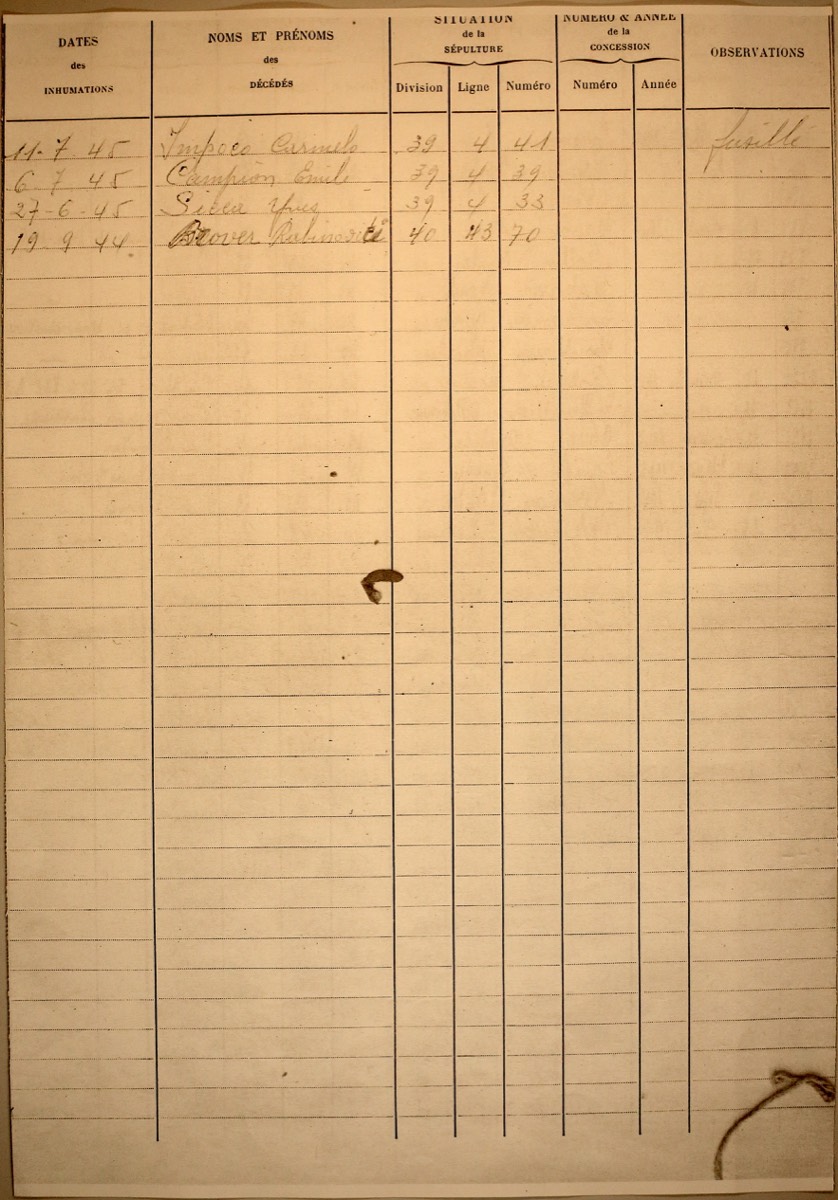 DATES
des
INHUMATIONS
NOMS ET PRÉNOMS
des
DÉCÉDÉS
SITUATION
de la
SÉPULTURE
Division Ligne Numéro
NUMÉRO & ANNÉE
de la
CONCESSION
Numéro Année
OBSERVATIONS
11-7 45 Impoco Carmelo 39 4 41 fusillé
6-7 45 Campion Emile 39 4 39
27-6-45 Yves 39 4 33
19 9 44 40 43 70